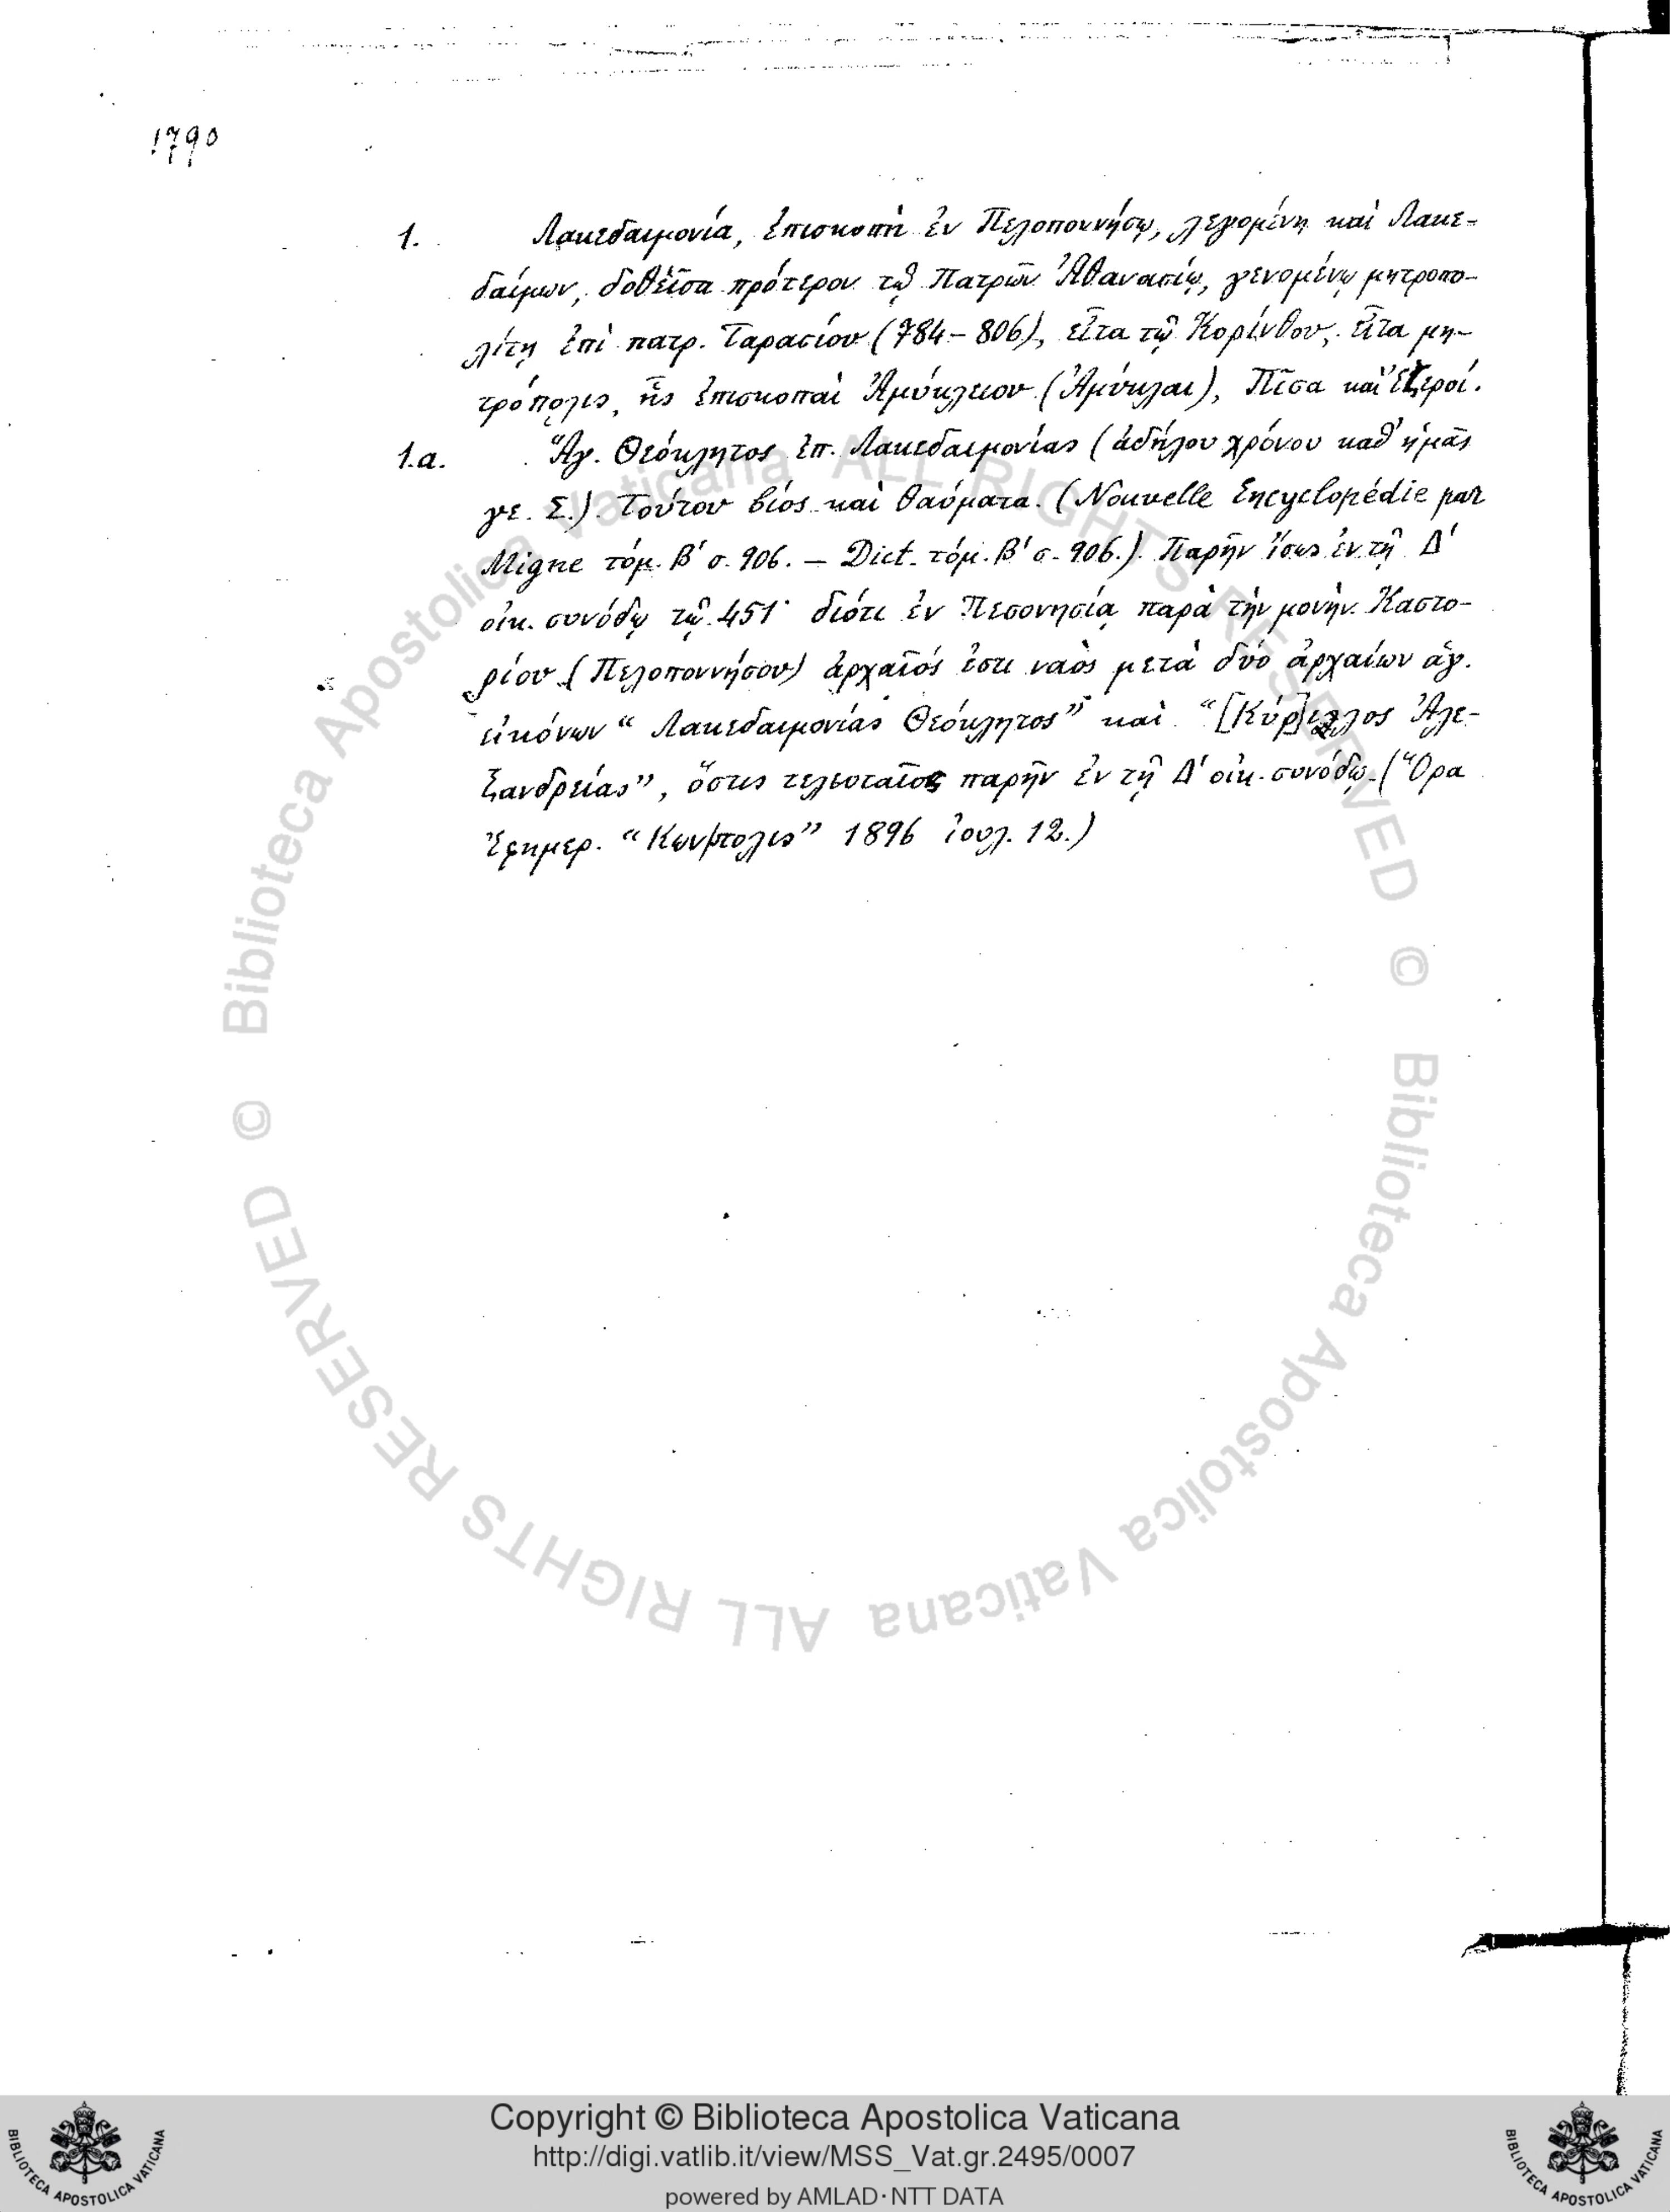 1790
1. Λακεδαιμονία, ἐπισκοπὴ ἐν Πελοποννήσῳ, λεγομένη καὶ Λακε-
δαίμων, δοθεῖσα πρότερον τῷ Πατρῶν Ἀθανασίῳ, γενομένῳ μητροπο-
λίτῃ ἐπὶ πατρ. Ταρασίου (784-806), εἶτα τῷ Κορίνθου, εἶτα μη-
τρόπολις, ἧς ἐπισκοπαὶ Ἀμύκλειον (Ἀμύκλαι), Πῖσα καὶ
1.α. Ἅγ. Θεόκλητος ἐπ. Λακεδαιμονίας (ἀδήλου χρόνου καθ' ἡμᾶς
γε. Σ.). Τούτου βίος καὶ θαύματα. (Nouvelle Encyclopédie par
Migne τόμ. Β' σ. 906. — Dict. τόμ. Β' σ. 906.). Παρῆν ἴσως ἐν τῇ Δ'
οἰκ. συνόδῳ τῷ 451· διότι ἐν παρὰ τὴν μονὴν Καστο-
ρίου (Πελοποννήσου) ἀρχαῖός ἐστι ναὸς μετὰ δύο ἀρχαίων ἁγ.
εἰκόνων “Λακεδαιμονίας Θεόκλητος” καὶ “[Κύρ]ιλλος Ἀλε-
ξανδρείας”, ὅστις τελευταῖος παρῆν ἐν τῇ Δ' οἰκ. συνόδῳ. (Ὅρα
Ἐφημερ. “Κων/πολις” 1896 ἰουλ. 12.)
© Biblioteca Apostolica Vaticana ALL RIGHTS RESERVED
© Biblioteca Apostolica Vaticana ALL RIGHTS RESERVED
BIBLIOTECA APOSTOLICA VATICANA
Copyright © Biblioteca Apostolica Vaticana
http://digi.vatlib.it/view/MSS_Vat.gr.2495/0007
powered by AMLAD·NTT DATA
BIBLIOTECA APOSTOLICA VATICANA